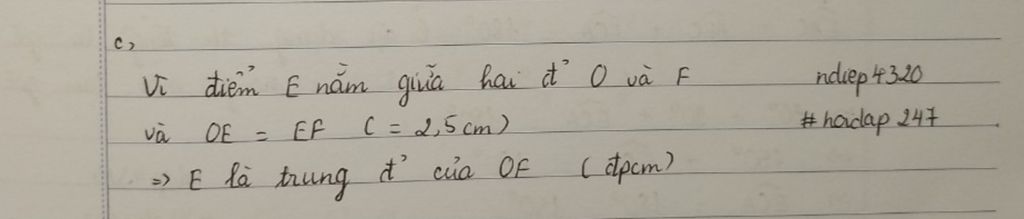 c,
Vì điểm E nằm giữa hai đ' O và F
ndiep4320
và OE = EF ( = 2,5cm)
#hoidap247
=> E là trung đ' của OF (đpcm)